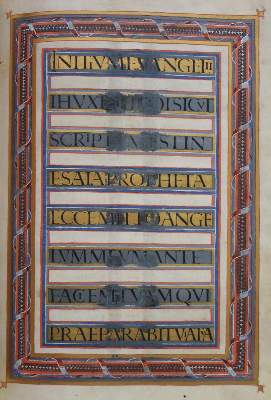 INITIVM EVANGELII
IHV XPI DI SICVT
SCRIPTVM EST IN
ESAIA PROPHETA
ECCE MITTO ANGE
LVM MEVM ANTE
FACIEM TVAM QVI
PRAEPARABIT